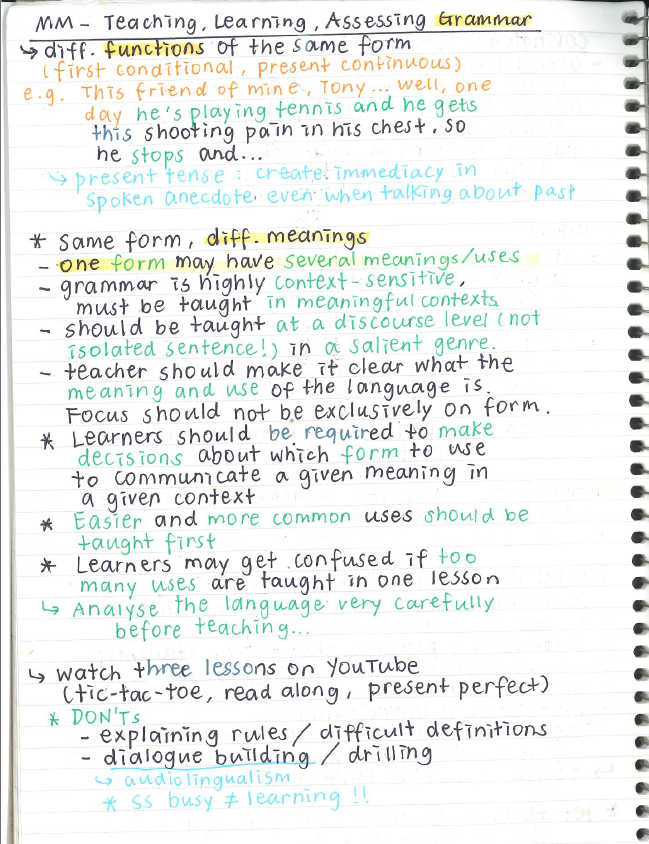 MM - Teaching, Learning, Assessing Grammar
↳ diff. functions of the same form
(first conditional, present continuous)
e.g. This friend of mine, Tony... well, one
day he's playing tennis and he gets
this shooting pain in his chest. So
he stops and...
↳ present tense : create immediacy in
spoken anecdote even when talking about past
* same form, diff. meanings
- one form may have several meanings/uses
- grammar is highly context-sensitive,
must be taught in meaningful contexts
- should be taught at a discourse level (not
isolated sentence!) in a salient genre.
- teacher should make it clear what the
meaning and use of the language is.
Focus should not be exclusively on form.
* Learners should be required to make
decisions about which form to use
to communicate a given meaning in
a given context
* Easier and more common uses should be
taught first
* Learners may get confused if too
many uses are taught in one lesson
↳ Analyse the language very carefully
before teaching...
↳ watch three lessons on YouTube
(tic-tac-toe, read along, present perfect)
* DON'Ts
- explaining rules / difficult definitions
- dialogue building / drilling
↳ audiolingualism
* SS busy ≠ learning !!